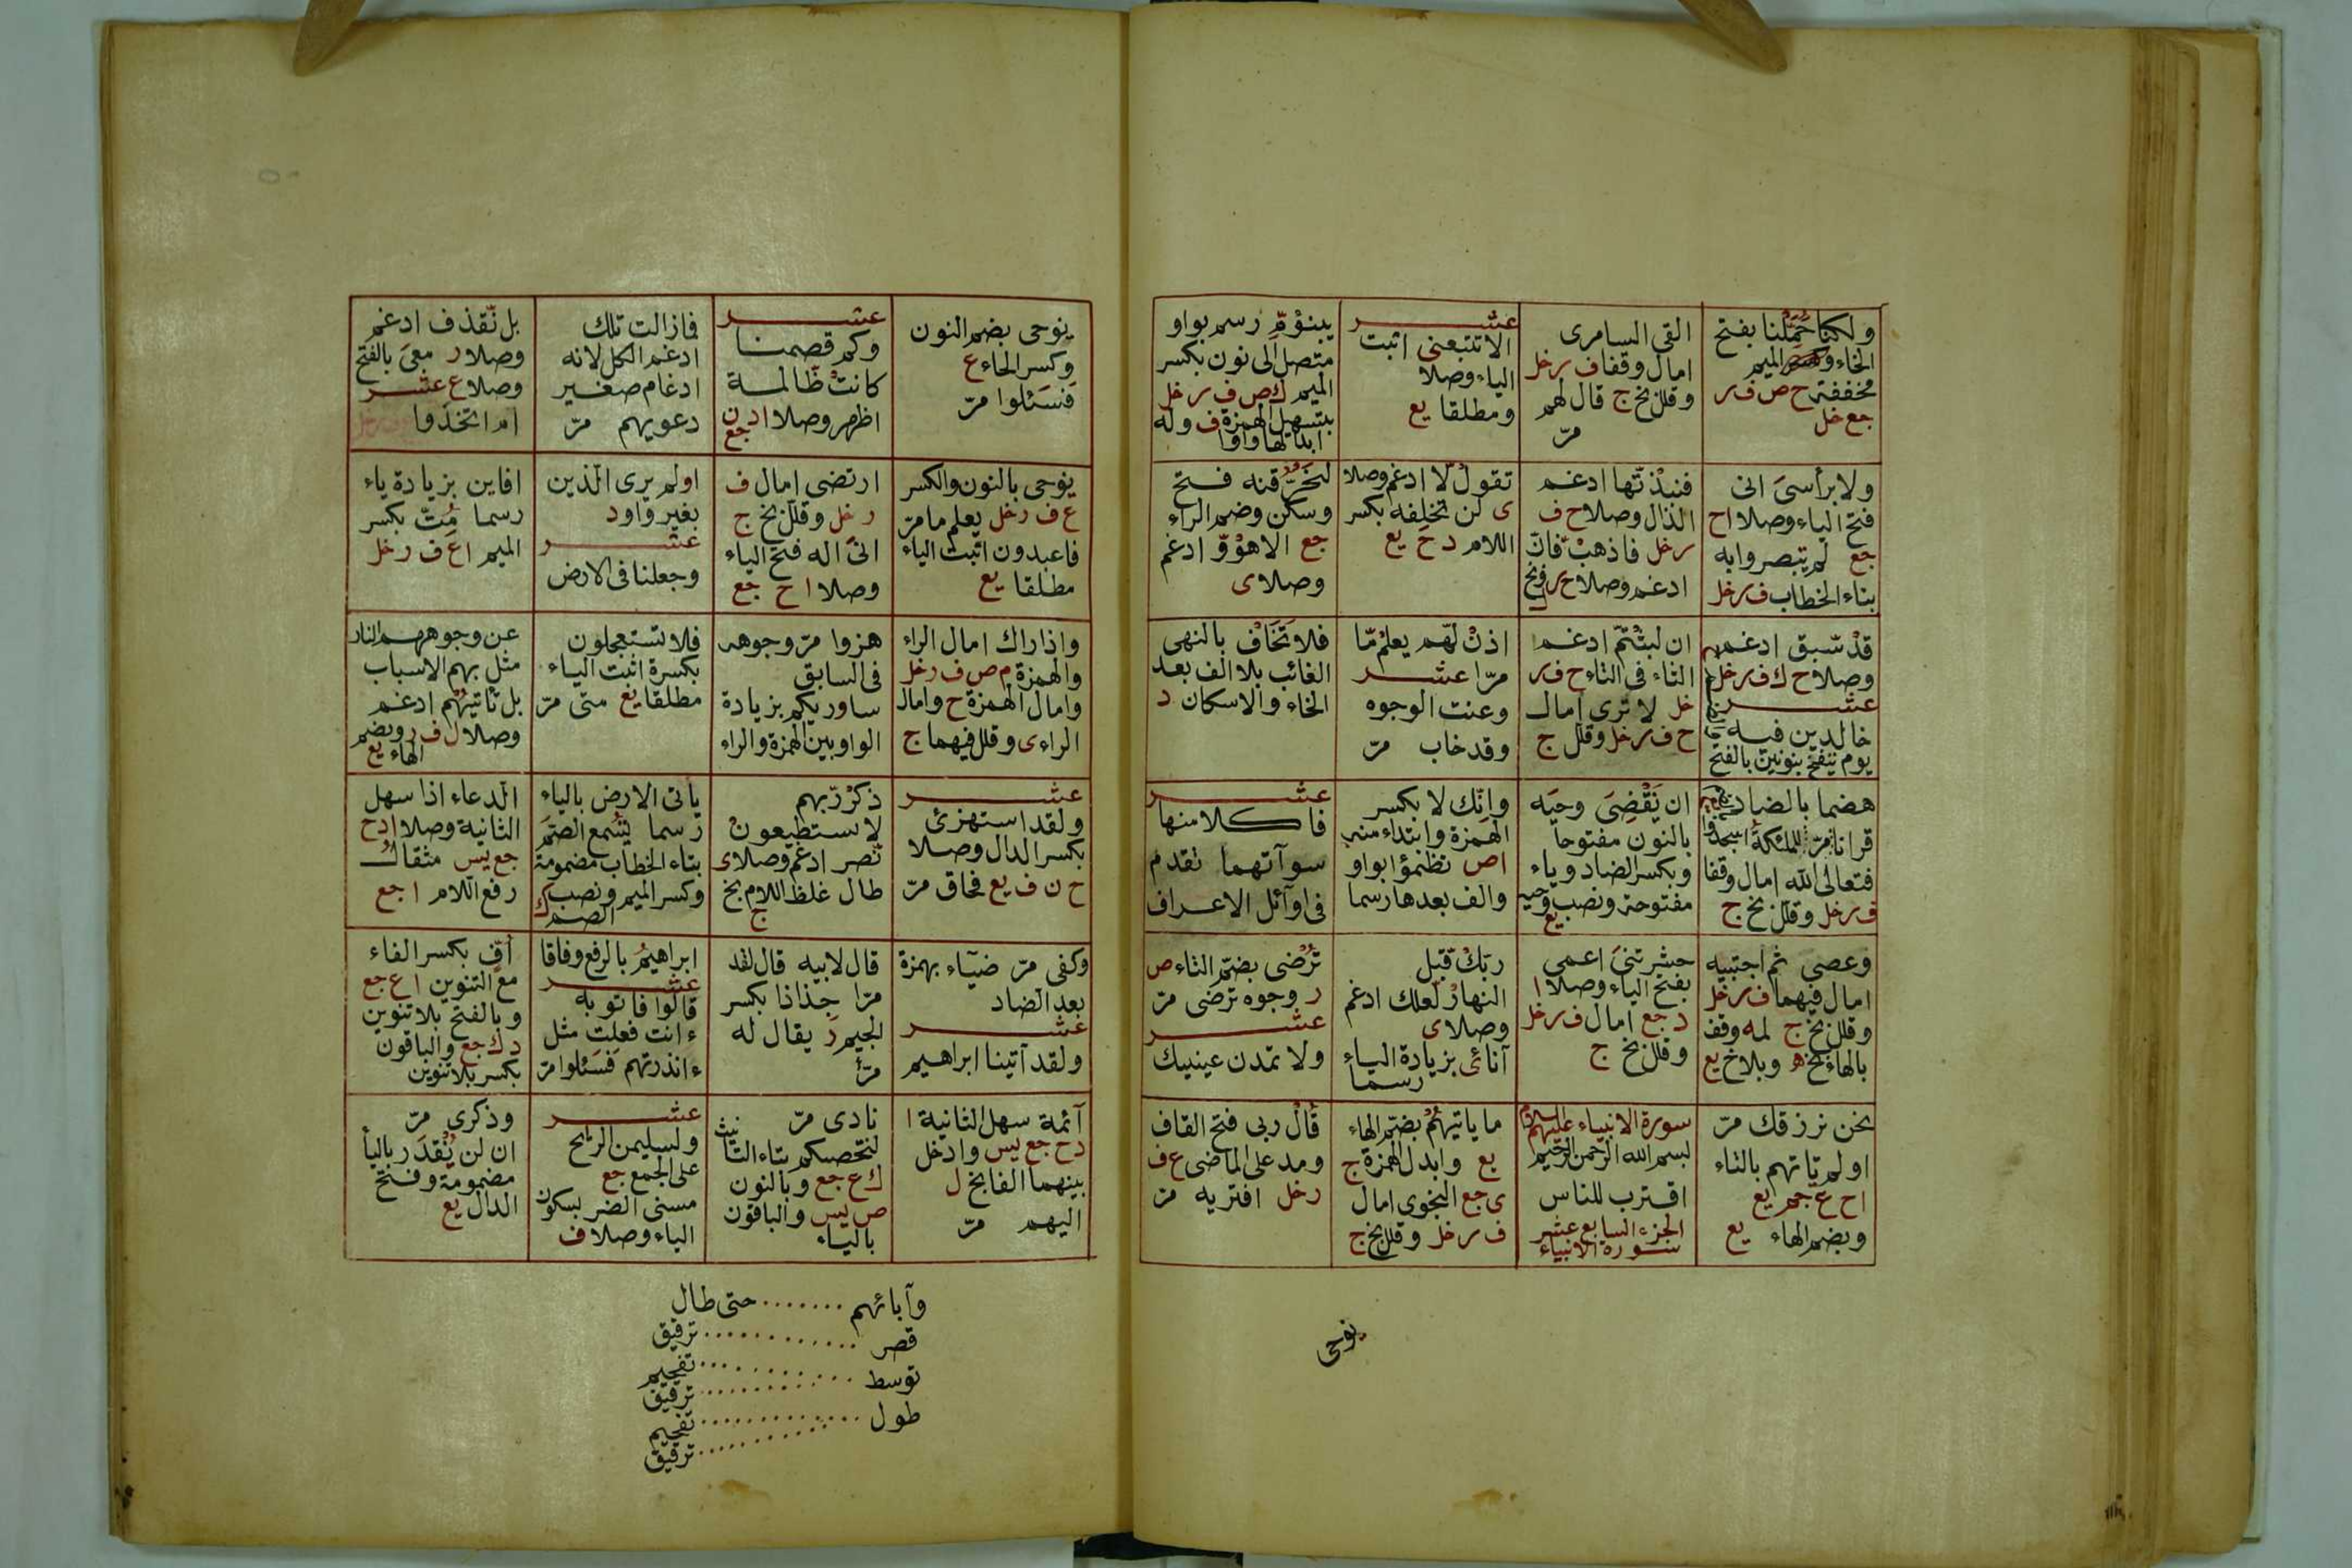 ولكنا حملنا بفتح
الحاء والميم
مخففة ح ص ف ر
جع خل
القى السامرى
امال وقفا ف ر خل
وقلل بخ ج قال لهم
مرّ
عشر
الا تتبعنى اثبت
الياء وصلا
ومطلقا يع
يبنؤمّ رسم بواو
متصل الى نون بكسر
الميم ك ص ف ر خل
بتسهيل الهمزة ف وله
ابدالها واوا
ولا برأسى انى
فتح الياء وصلا ا ح
جع لم يتبصروا به
بتاء الخطاب ف ر خل
فنبذتها ادغم
الذال وصلا ح ف
ر خل فاذهب فانّ
ادغم وصلا ح ر
تقول لا ادغم وصلا
ى لن تخلفه بكسر
اللام د ح يع
لنحرقنه فتح
وسكن وضم الراء
جع الا هو و ادغم
وصلا ى
قد سبق ادغم
وصلا ح ك ف ر خل
عشر
خالدين فيه
يوم ننفخ بنونين بالفتح
ان لبثتم ادغم
الثاء فى التاء ح ف ر
خل لا ترى امال
ح ف ر خل وقلل ج
اذن لهم يعلم ما
مرّا عشر
وعنت الوجوه
وقد خاب مرّ
فلا تخاف بالنهى
الغائب بلا الف بعد
الخاء والاسكان د
هضما بالضاد
قرانا مرّ للملئكة اسجدوا
فتعالى الله امال وقفا
ف ر خل وقلل بخ ج
ان نقضى وحيه
بالنون مفتوحا
وبكسر الضاد وياء
مفتوحة ونصب وحيه
يع
وانك لا بكسر
الهمزة وابتداء منه
ا ص تظمؤا بواو
والف بعدها رسما
عشر
فاكلا منها
سوآتهما تقدم
فى اوآئل الاعراف
وعصى ثم اجتبيه
امال فيهما ف ر خل
وقلل بخ ج لمه وقف
بالهاء بخ ه وبلاخ يع
حشرتنى اعمى
بفتح الياء وصلا ا
د جع امال ف ر خل
وقلل بخ ج
ربك قبل
النهار لعلك ادغم
وصلا ى
آنائ بزيادة الياء
رسما
ترضى بضم التاء ص
ر وجوه ترضى مرّ
عشر
ولا تمدن عينيك
نحن نرزقك مرّ
اولم تاتهم بالتاء
ا ح ع جم يع
وبضم الهاء يع
سورة الانبياء عليهم السلام
بسم الله الرحمن الرحيم
اقترب للناس
الجزء السابع عشر
سورة الانبياء
ما ياتيهم بضم الهاء
يع وابدل الهمزة ج
ى جع النجوى امال
ف ر خل وقلل بخ ج
قال ربى فتح القاف
ومد على الماضى ع ف
ر خل افتريه مرّ
نوحى
يوحى بضم النون
وكسر الحاء ع
فسئلوا مرّ
عشر
وكم قصمنا
كانت ظالمة
اظهر وصلا ا د ن
جع
فما زالت تلك
ادغم الكل لانه
ادغام صغير
دعويهم مرّ
بل نقذف ادغم
وصلا ر معى بالفتح
وصلا ع عشر
ام اتخذوا
يوحى بالنون والكسر
ع ف ر خل يعلم ما مرّ
فاعبدون اثبت الياء
مطلقا يع
ارتضى امال ف
ر خل وقلل بخ ج
انى اله فتح الياء
وصلا ا ح جع
اولم يرى الذين
بغير واو د
عشر
وجعلنا فى الارض
افاين بزيادة ياء
رسما متّ بكسر
الميم ا ع ف ر خل
واذا راك امال الراء
والهمزة م ص ف ر خل
وامال الهمزة ح وامال
الراء ى وقلل فيهما ج
هزوا مرّ وجوهه
فى السابق
ساوريكم بزيادة
الواو بين الهمزة والراء
فلا تستعجلون
بكسرة اثبت الياء
مطلقا يع متى مرّ
عن وجوههم النار
مثل بهم الاسباب
بل تاتيهم ادغم
وصلا ل ف ر وبضم
الهاء يع
عشر
ولقد استهزئ
بكسر الدال وصلا
ح ن ف يع فحاق مرّ
ذكر ربهم
لا يستطيعون
نصر ادغم وصلا ى
طال غلظ اللام بخ
ج
ياتى الارض بالياء
رسما يسمع الصم
بتاء الخطاب مضمومة
وكسر الميم ونصب
الصم ك
الدعاء اذا سهل
الثانية وصلا ا د ح
جع يس مثقال
رفع اللام ا جع
وكفى مرّ ضيآء بهمزة
بعد الضاد
عشر
ولقد آتينا ابراهيم
قال لابيه قال لقد
مرّا جذاذا بكسر
الجيم ر يقال له
مرّ
ابراهيم بالرفع وفاقا
عشر
قالوا فاتو به
ءانت فعلت مثل
ءانذرتهم فسئلوا مرّ
أفّ بكسر الفاء
مع التنوين ا ع جع
وبالفتح بلا تنوين
د ك جع والباقون
بكسر بلا تنوين
آئمة سهل الثانية ا
د ح جع يس وادخل
بينهما الفا بخ ل
اليهم مرّ
نادى مرّ
لتحصنكم بتاء التانيث
ك ع جع وبالنون
ص يس والباقون
بالياء
عشر
ولسليمن الريح
على الجمع جع
مسنى الضر بسكون
الياء وصلا ف
وذكرى مرّ
ان لن نقدر باليأ
مضمومة وفتح
الدال يع
وآبائهم ....... حتى طال
قصر ............ ترقيق
تفخيم
توسط ............ ترقيق
تفخيم
طول ............ ترقيق